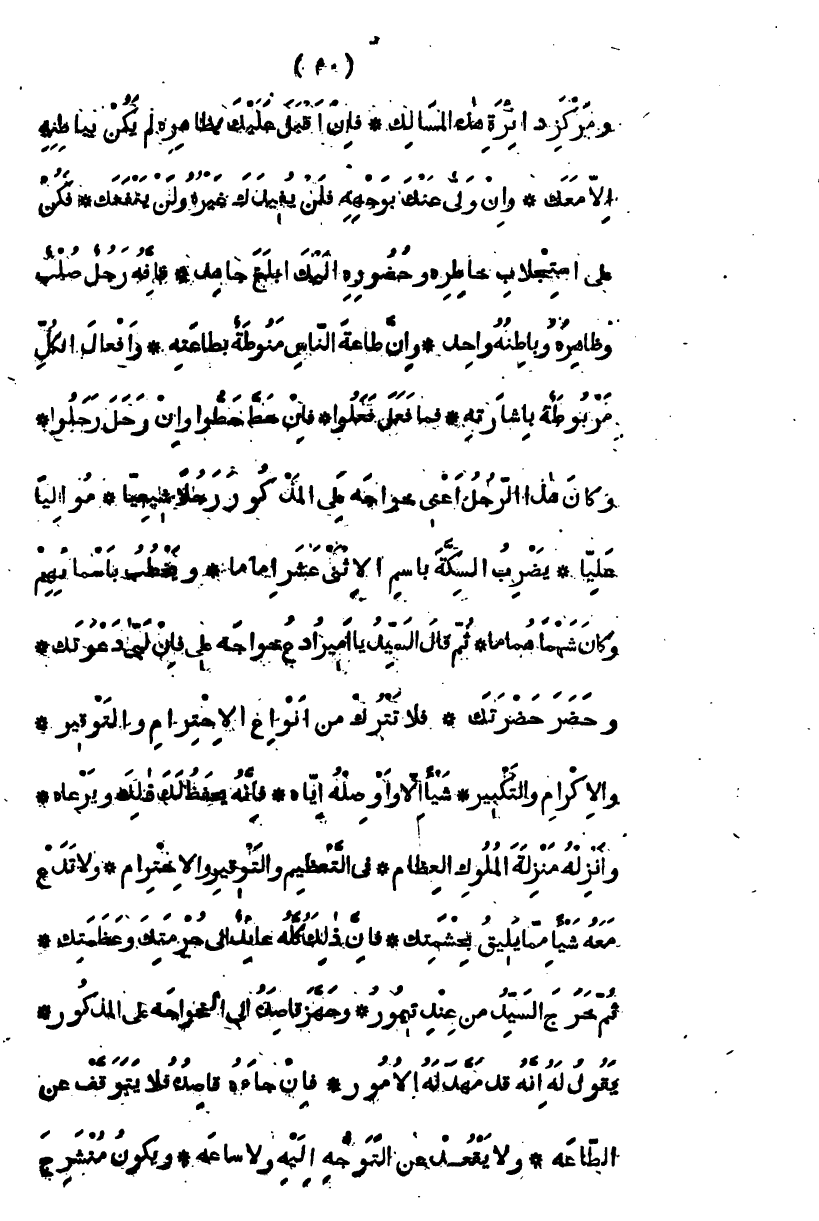 (٥٠)
ومَرْكَزِ دائِرَةِ هٰذه المَسَالِك * فاِنْ اَقْبَلَ عَلَيْكَ بظاهِرِه لم يَكُنْ بباطِنِهِ
اِلّا مَعَكَ * واِنْ وَلّى عَنْكَ بوَجْهِهِ فلَنْ يفيدَك غيرُه ولَنْ يَنْفَعَك * فكُنْ
على اسْتِجْلابِ خاطِرِه وحُضُورِهِ اليْكَ ابلَغَ جاهِد * فاِنَّه رَجُلٌ صُلْبٌ
وظاهِرُهُ وباطِنُهُ واحِد * واِنَّ طاعَةَ النّاسِ مَنُوطَةٌ بطاعَتِه * وَاَفْعالَ الكُلِّ
مَرْبُوطَةٌ بِاِشارَتِهِ * فما فَعَلَ فَعَلُوا * فاِنْ حَطَّ حَطُّوا واِنْ رَحَلَ رَحَلُوا *
وَكانَ هٰذا الرَّجُلُ اَعْنى خواجَه عَلى المَذْكُورُ رَجُلًا شِيعِيّا * مُوالِيًا
عَلِيّا * يَضْرِبُ السِكَّةَ باسمِ الاِثْنَىْ عَشَرَ اِماما * ويَخْطُبُ بَاَسْمائِهِمْ
وَكانَ شَهْمًا هُماما * ثُمَّ قالَ السَيِّدُ يا اَمِيرُ ادعُ خواجَه عَلى فاِنْ لَبّى دَعْوَتَك *
وحَضَرَ حَضْرَتَك * فلا تَتْرُكْ من اَنْواعِ الاِحْتِرامِ والتَوْقِير *
والاِكْرامِ والتَكْبِير * شَيْأً اِلّا واَوْصِلْهُ اِيّاه * فاِنَّهُ يحفَظُ لَكَ ذٰلِكَ ويَرْعاه *
واَنْزِلْهُ مَنْزِلَةَ المُلُوكِ العِظام * فى التَعْظِيمِ والتَوْقيرِ والاِحْتِرام * ولا تَدَعْ
مَعَهُ شَيْأً مِمّا يَلِيقُ بحِشْمَتِك * فاِنَّ ذٰلِكَ كُلَّهُ عائِدٌ الى حُرْمَتِكَ وعَظَمَتِك *
ثُمَّ خَرَجَ السَيِّدُ من عِنْدِ تيمُور * وجَهَّزَ قاصِدَهُ الى الخواجَه على المذكُور *
يَقُولُ لَهُ اِنَّهُ قد مَهَّدَ لَهُ الاُمُور * فاِنْ جاءَه قاصِدُه فلا يَتَوَقَّفْ عن
الطّاعَه * ولا يَقْعُدْ عن التَوَجُّهِ اِلَيْهِ ولا ساعَه * ويكونُ مُنْشَرِحَ